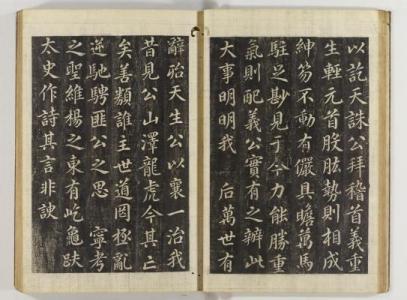 以訖天誅公拜稽首義重
生輕元首股肱勢則相成
紳笏不動有儼具瞻萬馬
駐足尠見于今力能勝重
氣則配義公實有之辦此
大事明明我 后萬世有
辭詒天生公以襄一治我
昔見公山澤龍虎今其亡
矣善類誰主世道罔極亂
逆馳騁匪公之思 寧考
之聖維楊之東有屹龜趺
太史作詩其言非諛